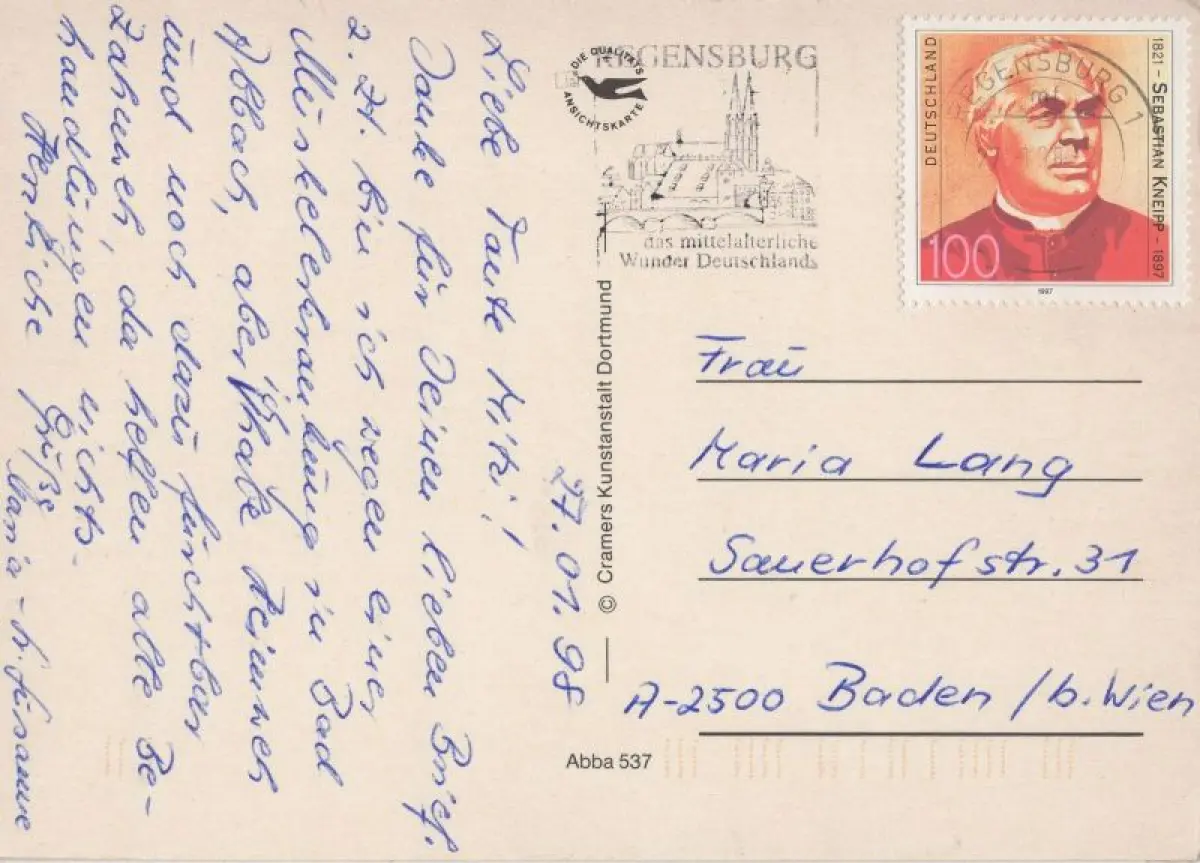 27.01.98
Liebe Tante Mitzi!
Danke für Deinen lieben Brief.
z. Zt. bin ich wegen einer
Muskelerkrankung in Bad
Abbach, aber ich habe Heimweh
und noch dazu furchtbar
Zahnweh, da helfen alte Be-
handlungen nichts.
Herzliche Grüße
Maria-
DIE QUALITÄTS
ANSICHTSKARTE
REGENSBURG
das mittelalterliche
Wunder Deutschlands
REGENSBURG 1
mf
DEUTSCHLAND
1821 – SEBASTIAN KNEIPP – 1897
100
1997
© Cramers Kunstanstalt Dortmund
Frau
Maria Lang
Sauerhofstr. 31
A-2500 Baden /b. Wien
Abba 537